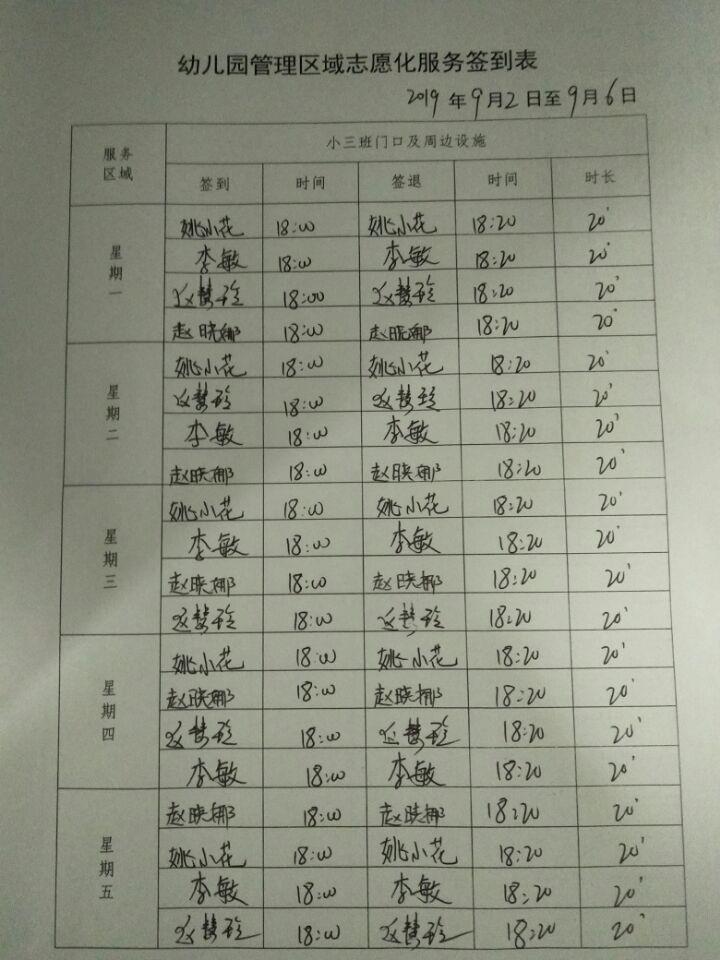 幼儿园管理区域志愿化服务签到表
2019年9月2日至9月6日
服务区域 小三班门口及周边设施
签到 时间 签退 时间 时长
星期一
姚小花 18:00 姚小花 18:20 20'
李敏 18:00 李敏 18:20 20'
赵慧玲 18:00 赵慧玲 18:20 20'
赵晓娜 18:00 赵晓娜 18:20 20'
星期二
姚小花 18:00 姚小花 18:20 20'
赵慧玲 18:00 赵慧玲 18:20 20'
李敏 18:00 李敏 18:20 20'
赵晓娜 18:00 赵晓娜 18:20 20'
星期三
姚小花 18:00 姚小花 18:20 20'
李敏 18:00 李敏 18:20 20'
赵晓娜 18:00 赵晓娜 18:20 20'
赵慧玲 18:00 赵慧玲 18:20 20'
星期四
姚小花 18:00 姚小花 18:20 20'
赵晓娜 18:00 赵晓娜 18:20 20'
赵慧玲 18:00 赵慧玲 18:20 20'
李敏 18:00 李敏 18:20 20'
星期五
赵晓娜 18:00 赵晓娜 18:20 20'
姚小花 18:00 姚小花 18:20 20'
李敏 18:00 李敏 18:20 20'
赵慧玲 18:00 赵慧玲 18:20 20'